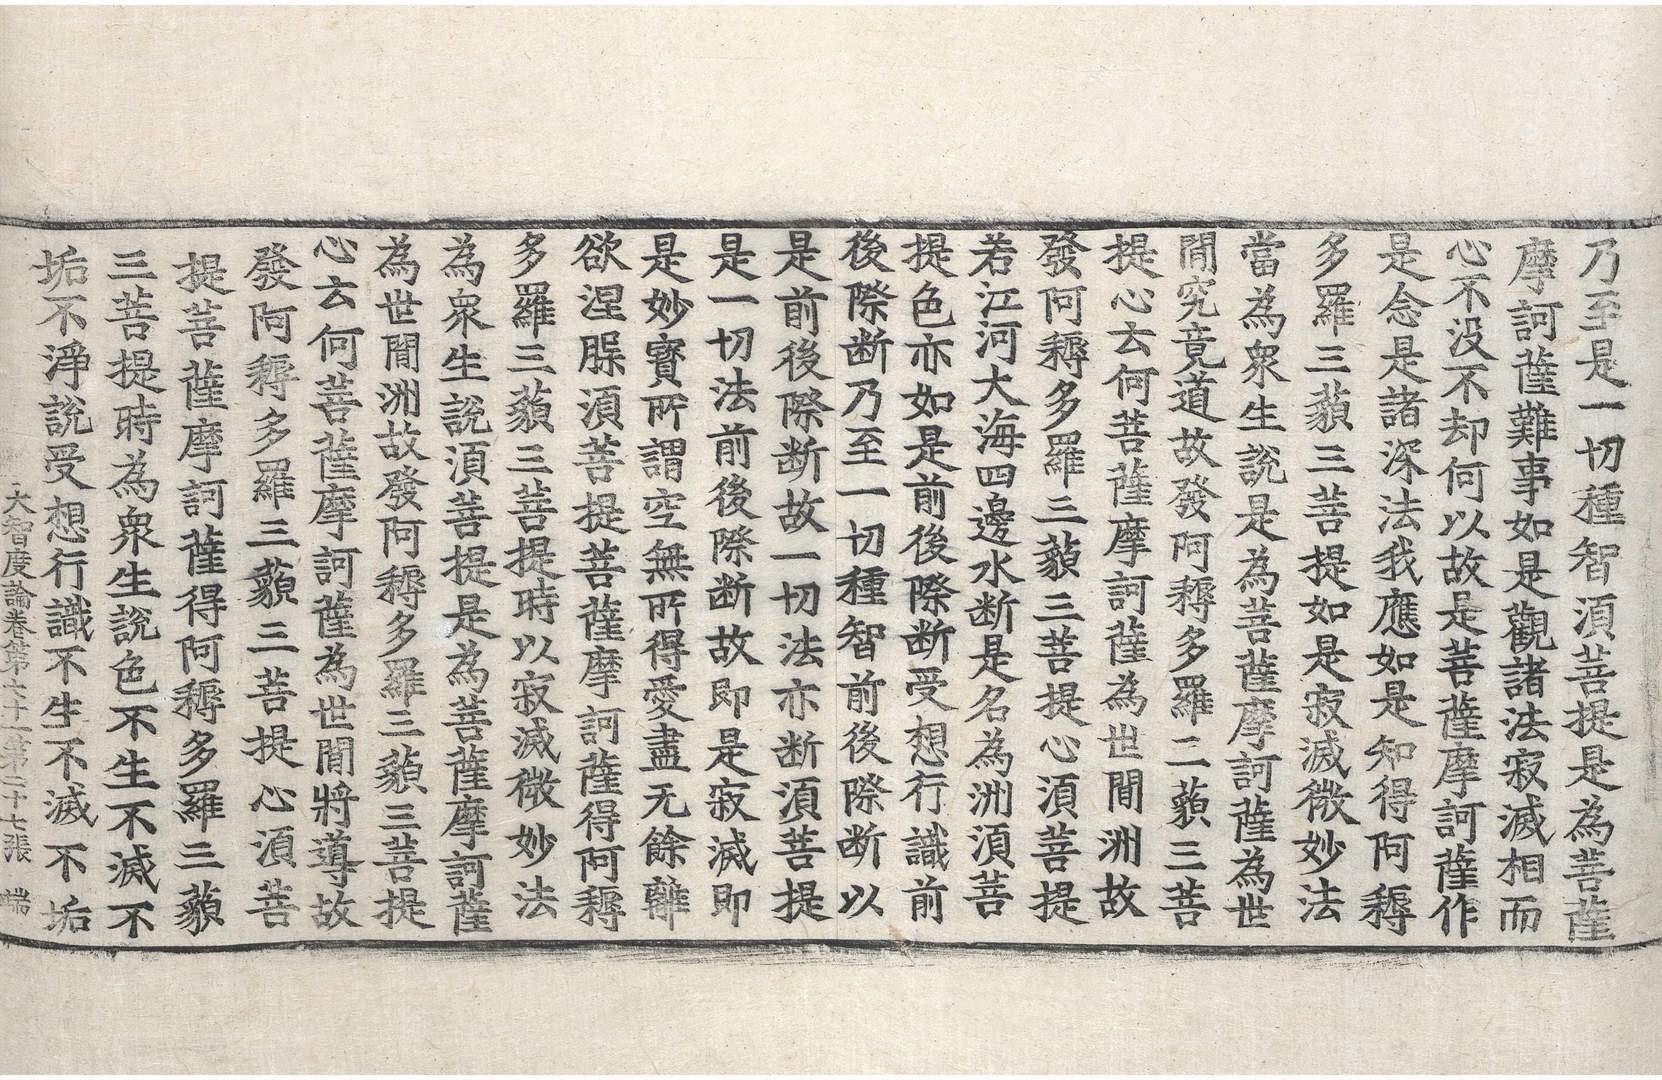 乃至是一切種智湏菩提是為菩薩
摩訶薩難事如是觀諸法寂滅相而
心不没不却何以故是菩薩摩訶薩作
是念是諸深法我應如是知得阿耨
多羅三藐三菩提如是寂滅微妙法
當為衆生說是為菩薩摩訶薩為世
間究竟道故發阿耨多羅三藐三菩
提心云何菩薩摩訶薩為世間洲故
發阿耨多羅三藐三菩提心湏菩提
若江河大海四邊水断是名為洲湏菩
提色亦如是前後際断受想行識前
後際断乃至一切種智前後際断以
是前後際断故一切法亦断湏菩提
是一切法前後際断故即是寂滅即
是妙寳所謂空無所得愛盡无餘離
欲涅槃湏菩提菩薩摩訶薩得阿耨
多羅三藐三菩提時以寂滅微妙法
為衆生說湏菩提是為菩薩摩訶薩
為世間洲故發阿耨多羅三藐三菩提
心云何菩薩摩訶薩為世間將導故
發阿耨多羅三藐三菩提心湏菩
提菩薩摩訶薩得阿耨多羅三藐
三菩提時為衆生說色不生不滅不
垢不淨說受想行識不生不滅不垢
大智度論卷第七十一第二十七張 端